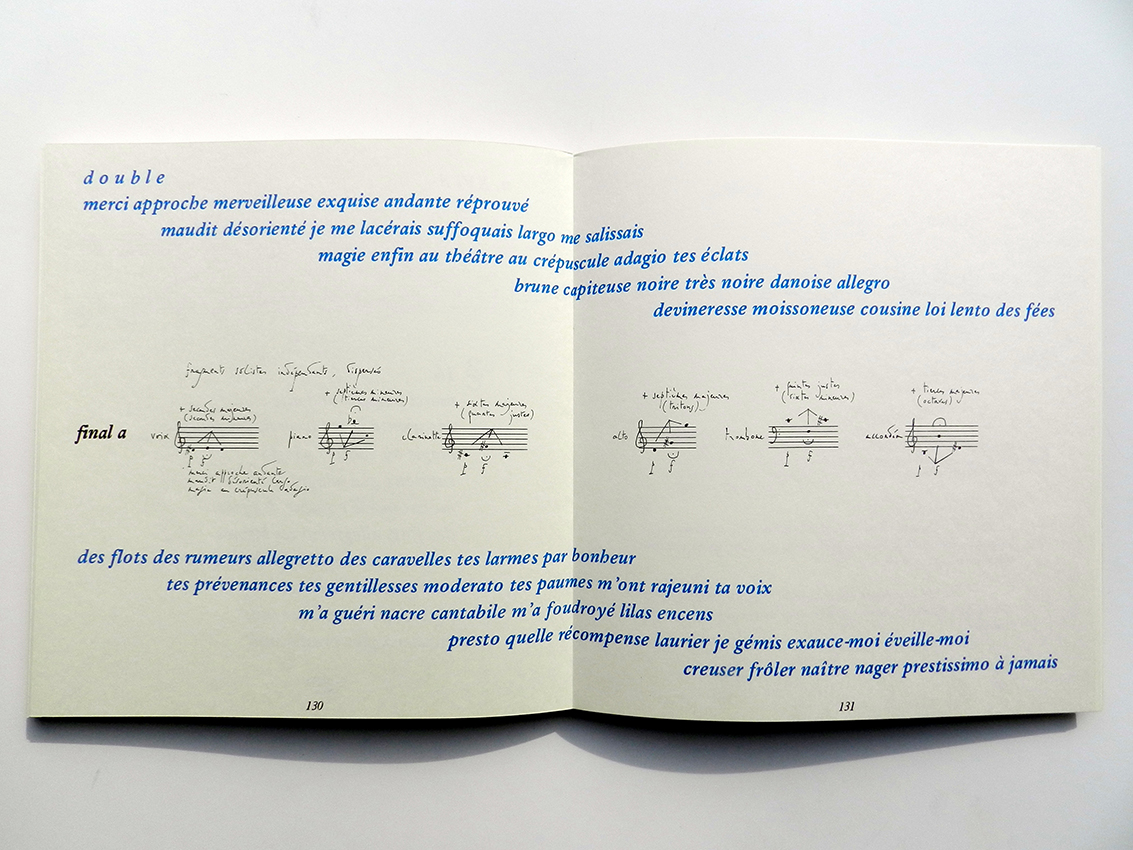 double
merci approche merveilleuse exquise andante réprouvé
maudit désorienté je me lacérais suffoquais largo me salissais
magie enfin au théâtre au crépuscule adagio tes éclats
brune capiteuse noire très noire danoise allegro
devineresse moissoneuse cousine loi lento des fées
fragments solistes indépendants, dispersés
+ secondes majeures
(secondes mineures)
+ septièmes mineures
(tierces mineures)
+ sixtes majeures
(quartes justes)
+ septièmes majeures
(tritons)
+ quintes justes
(sixtes mineures)
+ tierces majeures
(octaves)
final a
voix
piano
clarinette
alto
trombone
accordéon
p f
p f
p f
p f
p f
p f
merci approche andante
maudit désorienté largo
magie au crépuscule adagio
des flots des rumeurs allegretto des caravelles tes larmes par bonheur
tes prévenances tes gentillesses moderato tes paumes m'ont rajeuni ta voix
m'a guéri nacre cantabile m'a foudroyé lilas encens
presto quelle récompense laurier je gémis exauce-moi éveille-moi
creuser frôler naître nager prestissimo à jamais
130
131